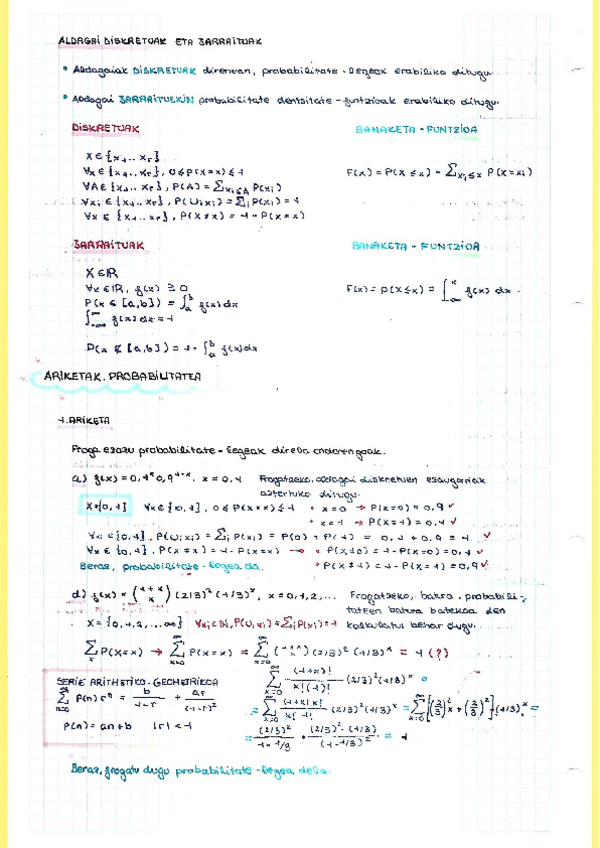 ALDAGAI DISKRETUAK ETA JARRAITUAK
• Aldagaiak DISKRETUAK direnean, probabilitate-legeak erabiliko ditugu.
• Aldagai JARRAITUEKIN probabilitate dentsitate-funtzioak erabiliko ditugu.
DISKRETUAK
BANAKETA-FUNTZIOA
X ∈ {x1... xr}
∀x ∈ {x1... xr}, 0 ≤ P(X=x) ≤ 1
F(x) = P(X ≤ x) = ∑xi≤x P(X=xi)
∀A ∈ {x1... xr}, P(A) = ∑xi∈A P(xi)
∀xi ∈ {x1... xr}, P(∪ixi) = ∑i P(xi) = 1
∀x ∈ {x1... xr}, P(X≠x) = 1 - P(X=x)
JARRAITUAK
BANAKETA-FUNTZIOA
X ∈ ℝ
∀x ∈ ℝ, f(x) ≥ 0
F(x) = P(X≤x) = ∫-∞^x f(x) dx
P(X ∈ [a,b]) = ∫a^b f(x) dx
∫-∞^∞ f(x) dx = 1
P(X ∉ [a,b]) = 1 - ∫a^b f(x) dx
ARIKETAK. PROBABILITATEA
1. ARIKETA
Froga ezazu probabilitate-legeak direla ondorengoak.
a) f(x) = 0,1^x 0,9^1-x, x = 0,1 Frogatzeko, aldagai diskretuen ezaugarriak
aztertuko ditugu.
X={0,1} ∀x ∈ {0,1}, 0 ≤ P(X=x) ≤ 1 • x=0 → P(X=0) = 0,9 ✓
• x=1 → P(X=1) = 0,1 ✓
∀xi ∈ {0,1}, P(∪ixi) = ∑i P(xi) = P(0) + P(1) = 0,1 + 0,9 = 1. ✓
∀x ∈ {0,1}, P(X≠x) = 1 - P(X=x) → • P(X≠0) = 1 - P(X=0) = 0,1 ✓
Beraz, probabilitate-legea da. • P(X≠1) = 1 - P(X=1) = 0,9 ✓
d) f(x) = (1+x x) (2/3)^2 (1/3)^x, x = 0,1,2,... Frogatzeko, batura, probabili-
tateen batura batekoa den
X = {0,1,2,...,∞} ∀xi ∈ ℕ, P(∪ixi) = ∑i P(xi) = 1 kalkulatu behar dugu.
∑x P(X=x) → ∑x=0^∞ P(X=x) = ∑x=0^∞ (1+x x) (2/3)^2 (1/3)^x = 1 (?)
SERIE ARITMETIKO-GEOMETRIKOA
∑x=0^∞ (1+x)! / x!(1)! (2/3)^2 (1/3)^x =
∑n=0^∞ P(n) r^n = b/1-r + ar/(1-r)^2
= ∑x=0^∞ (1+x) x! / x! 1! (2/3)^2 (1/3)^x = ∑x=0^∞ [(2/3)^2 x + (2/3)^2] (1/3)^x =
P(n) = an+b |r| < 1
= (2/3)^2 / 1-1/3 + (2/3)^2 · (1/3) / (1-1/3)^2 = 1
Beraz, frogatu dugu probabilitate-legea dela.